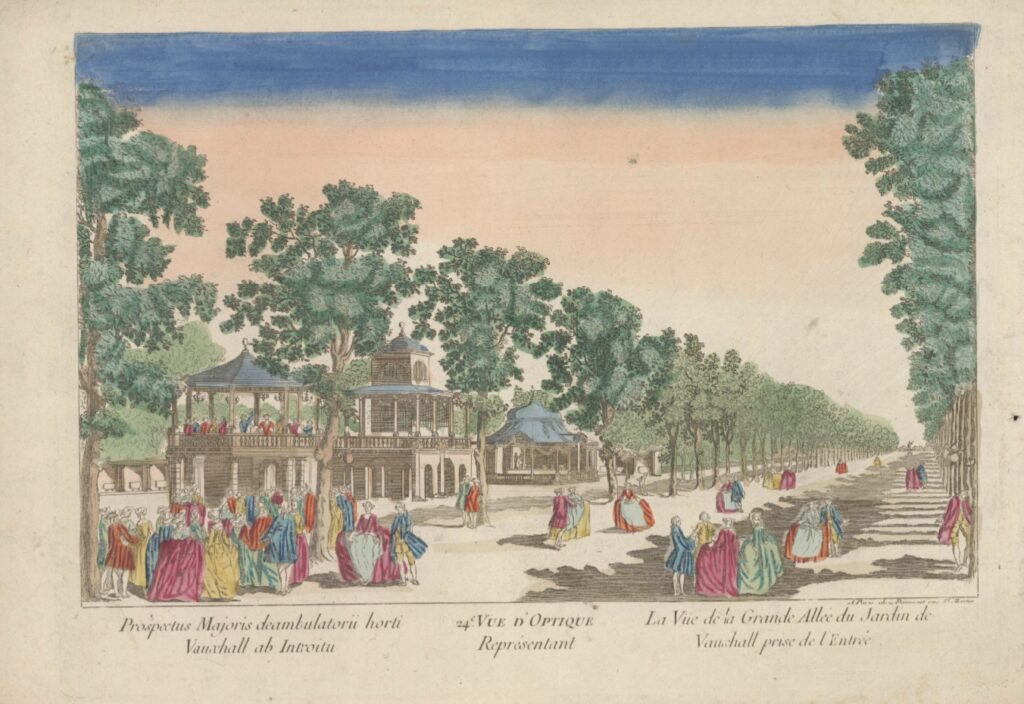 A Paris chez Daumont rue St. Martin
Prospectus Majoris deambulatorii horti
Vauxhall ab Introitu
24e. VUE D'OPTIQUE
Représentant
La Vüe de la Grande Allée du Jardin de
Vauxhall prise de l'Entrée.